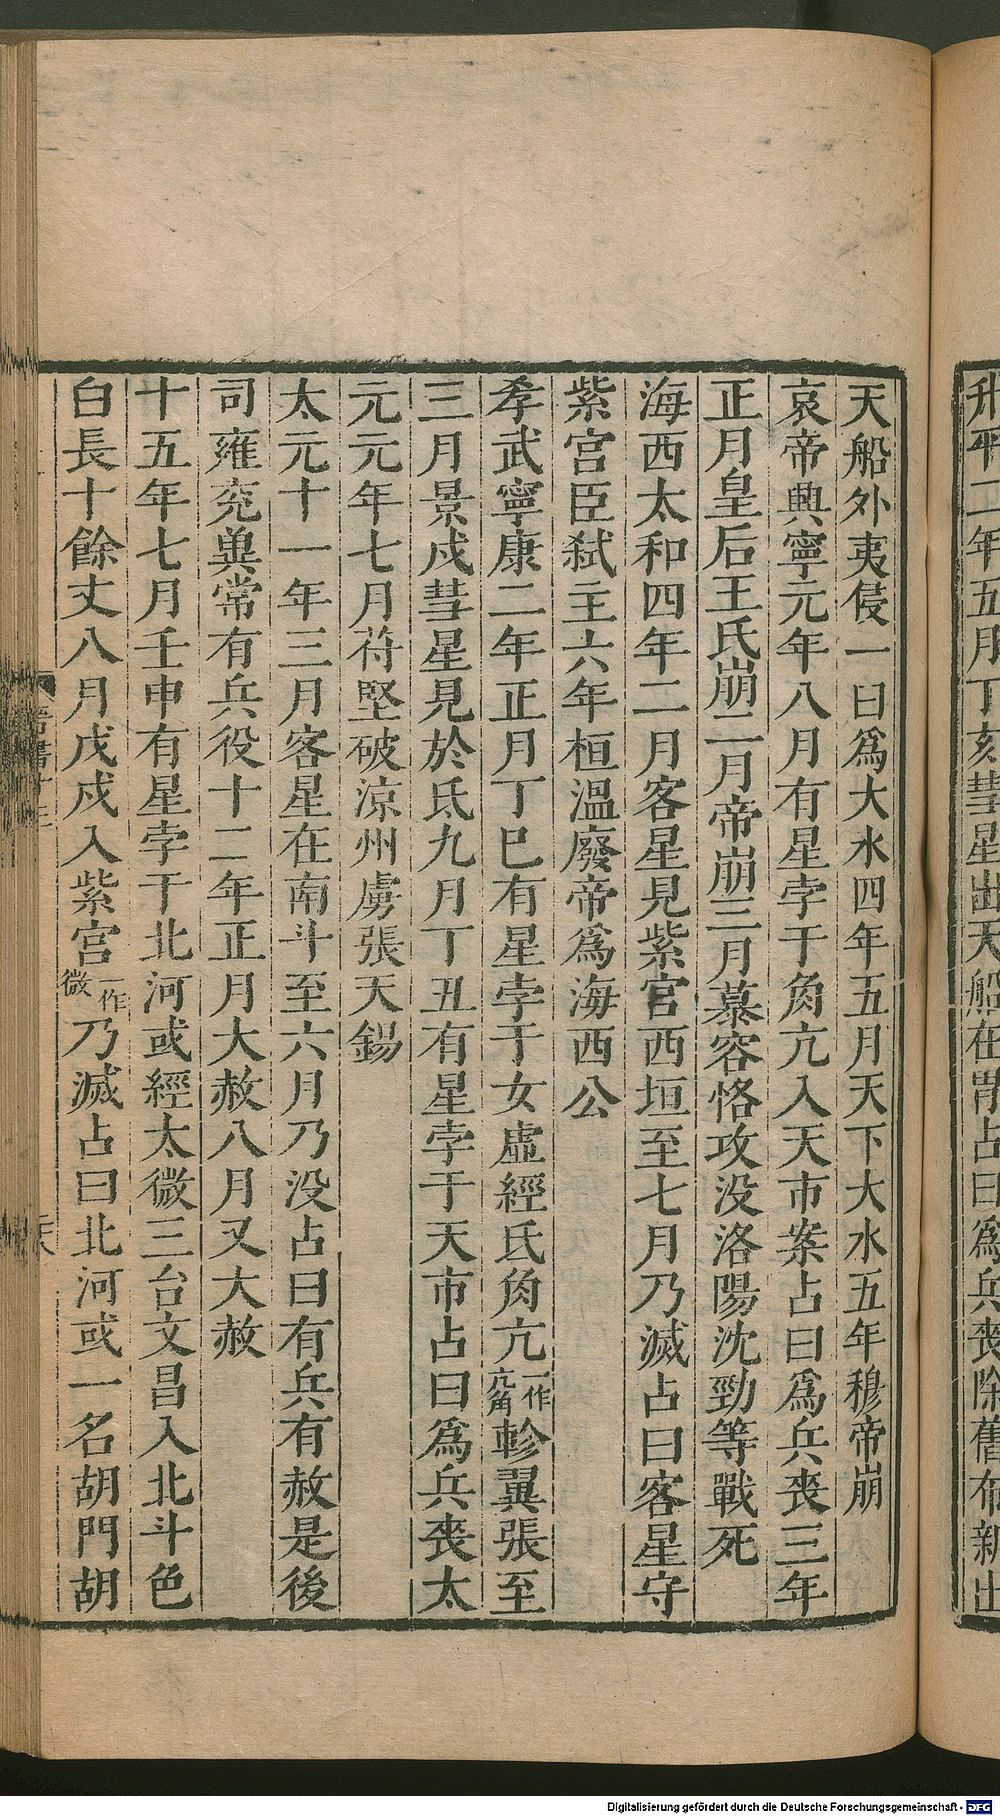 升平二年五月丁亥彗星出天船在胃占曰爲兵喪除舊布新出
天船外夷侵一曰爲大水四年五月天下大水五年穆帝崩
哀帝興寧元年八月有星孛于角亢入天市案占曰爲兵喪三年
正月皇后王氏崩二月帝崩三月慕容恪攻没洛陽沈勁等戰死
海西太和四年二月客星見紫宫西垣至七月乃滅占曰客星守
紫宫臣弑主六年桓溫廢帝爲海西公
孝武寧康二年正月丁巳有星孛于女虛經氐角亢一作亢角軫翼張至
三月景戍彗星見於氐九月丁丑有星孛于天市占曰爲兵喪太
元元年七月苻堅破涼州虜張天錫
太元十一年三月客星在南斗至六月乃没占曰有兵有赦是後
司雍兖兾常有兵役十二年正月大赦八月又大赦
十五年七月壬申有星孛于北河或經太微三台文昌入北斗色
白長十餘丈八月戊戍入紫宫一作微乃滅占曰北河或一名胡門胡
晉書十三
Digitalisierung gefördert durch die Deutsche Forschungsgemeinschaft - DFG